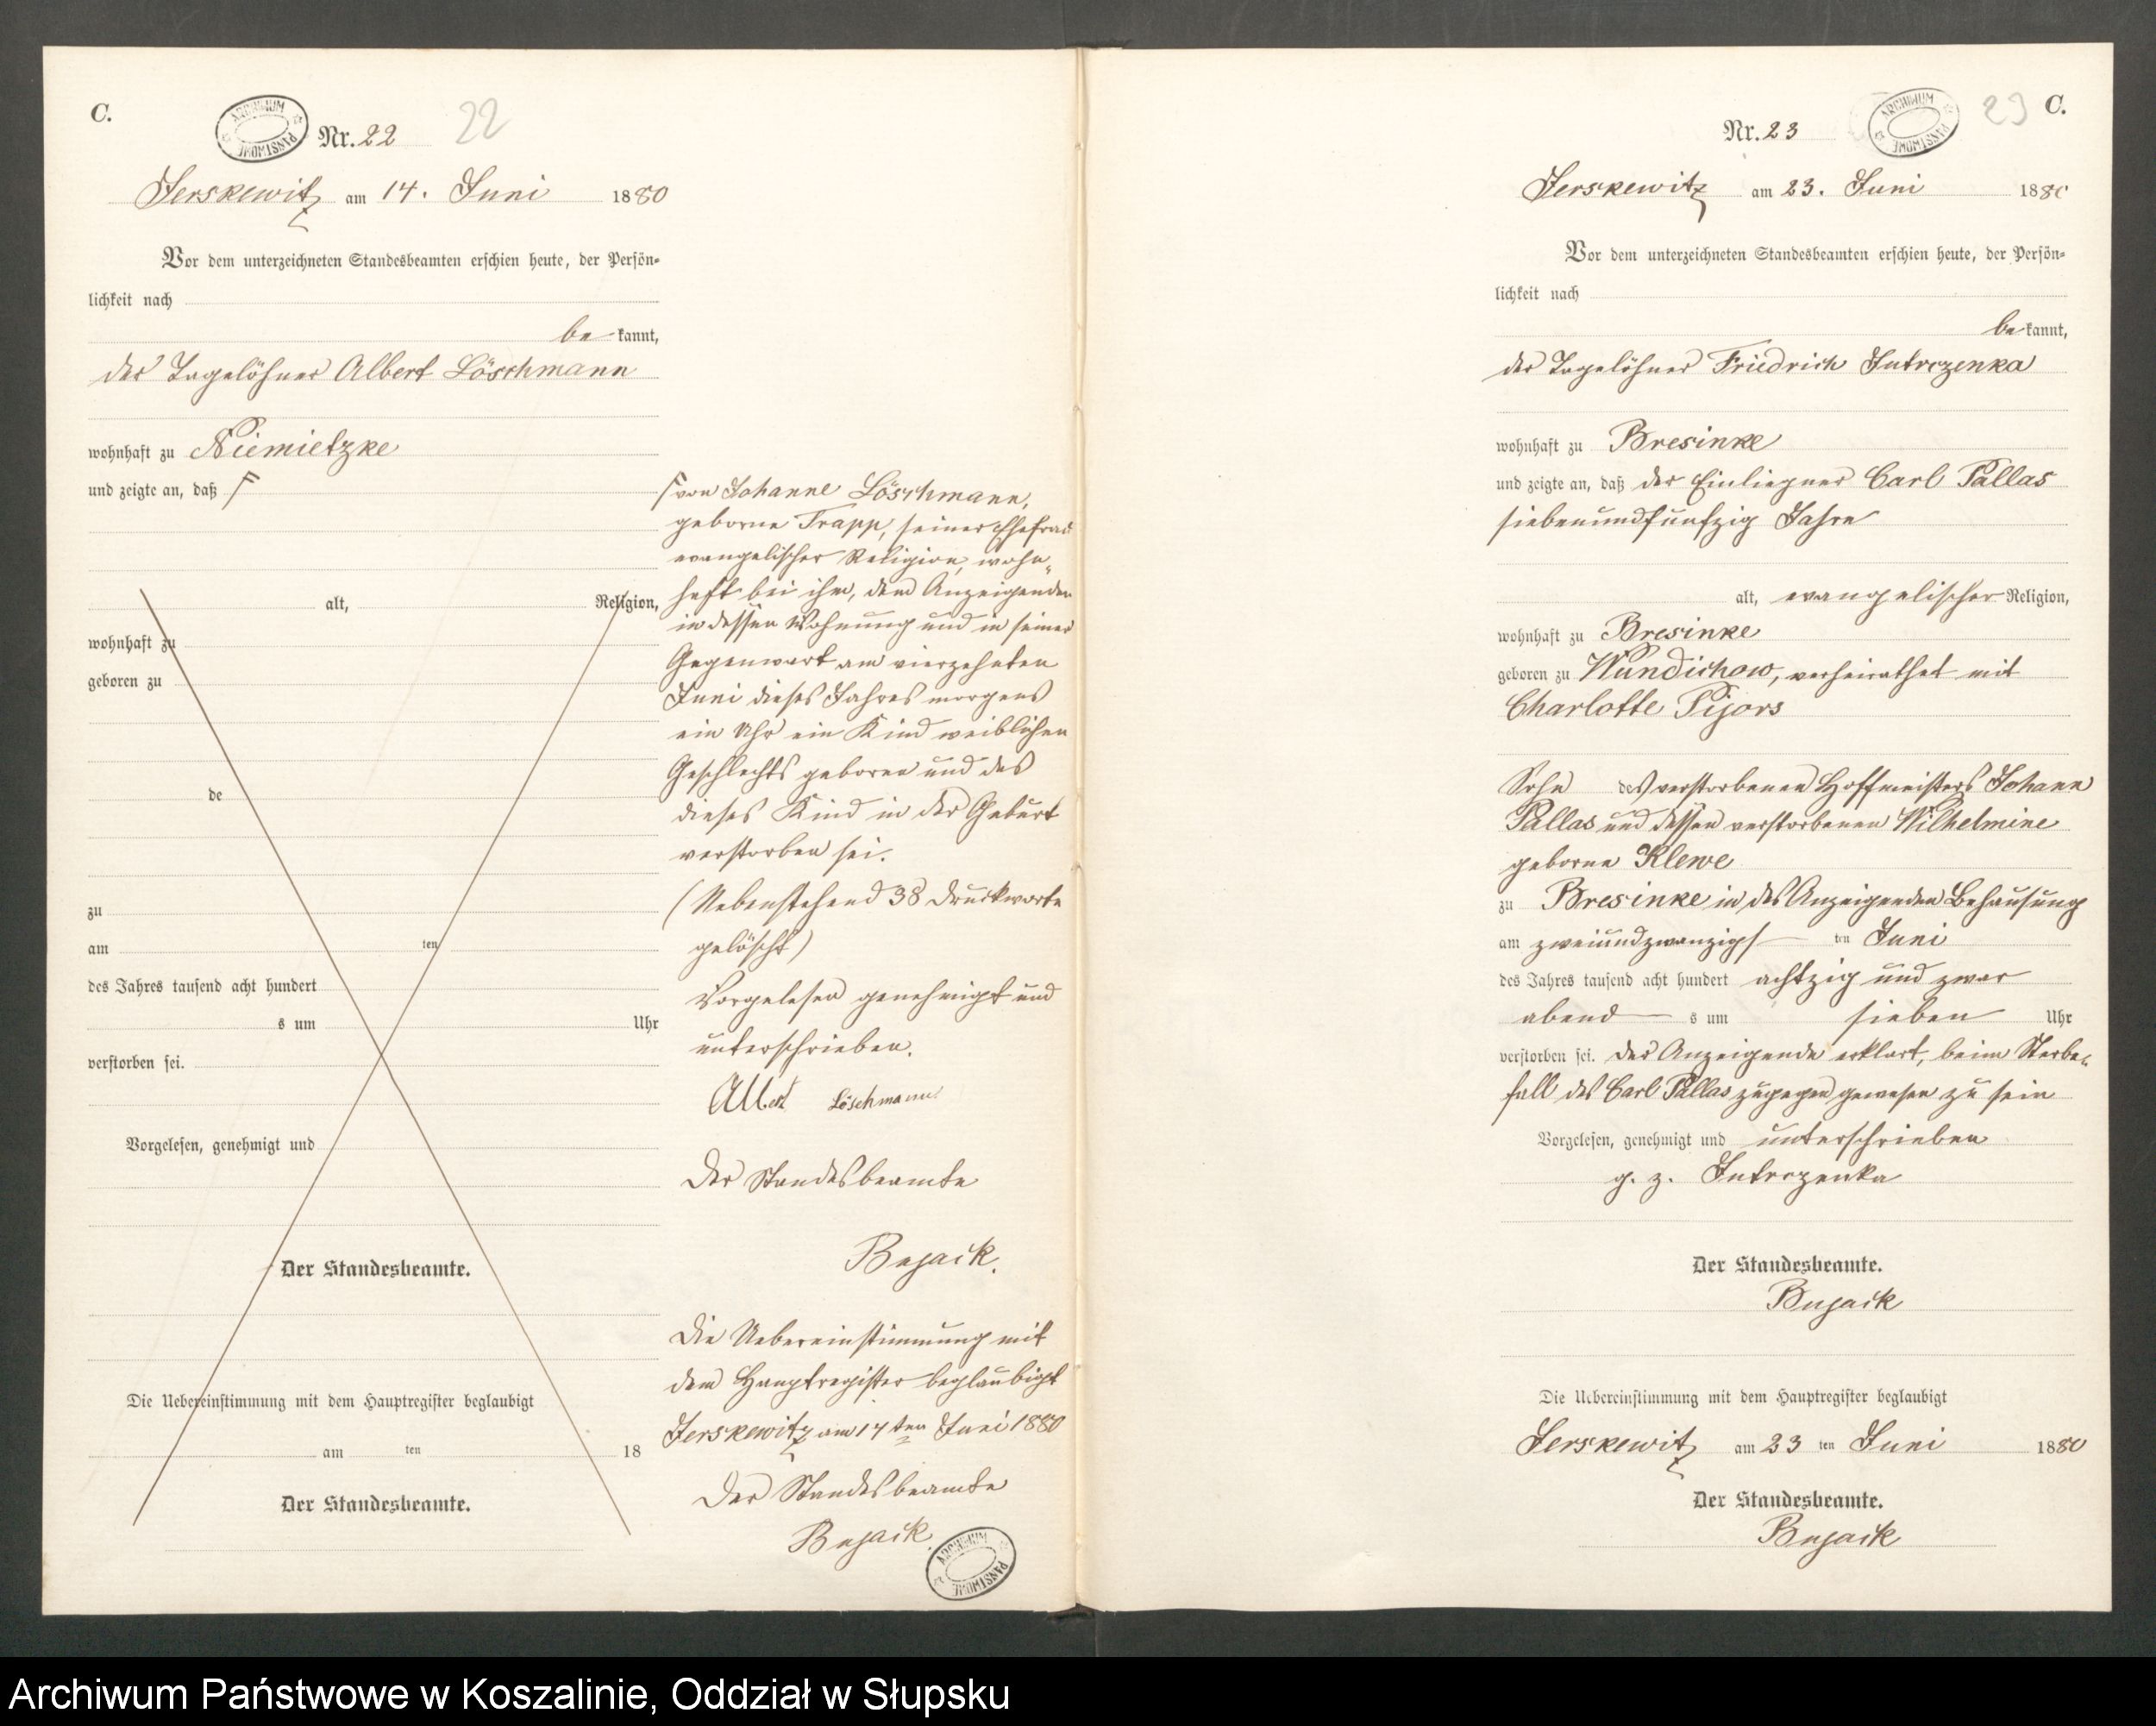 C.
ARCHIWUM PAŃSTWOWE
Nr. 22
22
Jerskewitz am 14. Juni 1880
Vor dem unterzeichneten Standesbeamten erschien heute, der Persön-
lichkeit nach
be kannt,
der Tagelöhner Albert Löschmann
wohnhaft zu Niemietzke
und zeigte an, daß
alt, Religion,
wohnhaft zu
geboren zu
de
zu
am ten
des Jahres tausend acht hundert
s um Uhr
verstorben sei.
Vorgelesen, genehmigt und
Der Standesbeamte.
Die Uebereinstimmung mit dem Hauptregister beglaubigt
am ten 18
Der Standesbeamte.
von Johanne Löschmann,
geborne Trapp, seiner Ehefrau
evangelischer Religion, wohn-
haft bei ihm, dem Anzeigenden
in dessen Wohnung und in seiner
Gegenwart am vierzehnten
Juni dieses Jahres morgens
ein Uhr ein Kind weiblichen
Geschlechts geboren und das
dieses Kind in der Geburt
verstorben sei.
(Nebenstehend 38 Druckworte
gelöscht)
Vorgelesen genehmigt und
unterschrieben.
Albert Löschmann
Der Standesbeamte
Bujack.
Die Uebereinstimmung mit
dem Hauptregister beglaubigt
Jerskewitz am 14 ten Juni 1880
Der Standesbeamte
Bujack
ARCHIWUM PAŃSTWOWE
Nr. 23
ARCHIWUM PAŃSTWOWE
23
C.
Jerskewitz am 23. Juni 1880
Vor dem unterzeichneten Standesbeamten erschien heute, der Persön-
lichkeit nach
be kannt,
der Tagelöhner Friedrich Jutrczenka
wohnhaft zu Bresinke
und zeigte an, daß der Einliegner Carl Pallas
siebenundfünfzig Jahre
alt, evangelischer Religion,
wohnhaft zu Bresinke
geboren zu Wundichow, verheirathet mit
Charlotte Pijors
Sohn des verstorbenen Hoffmeisters Johann
Pallas und dessen verstorbenen Wilhelmine
geborne Klewe
zu Bresinke in des Anzeigenden Behausung
am zweiundzwanzigs ten Juni
des Jahres tausend acht hundert achtzig und zwar
abend s um sieben Uhr
verstorben sei. Der Anzeigende erklärt, beim Sterbe-
fall des Carl Pallas zugegen gewesen zu sein
Vorgelesen, genehmigt und unterschrieben
g. z. Jutrczenka
Der Standesbeamte.
Bujack
Die Uebereinstimmung mit dem Hauptregister beglaubigt
Jerskewitz am 23 ten Juni 1880
Der Standesbeamte.
Bujack
Archiwum Państwowe w Koszalinie, Oddział w Słupsku